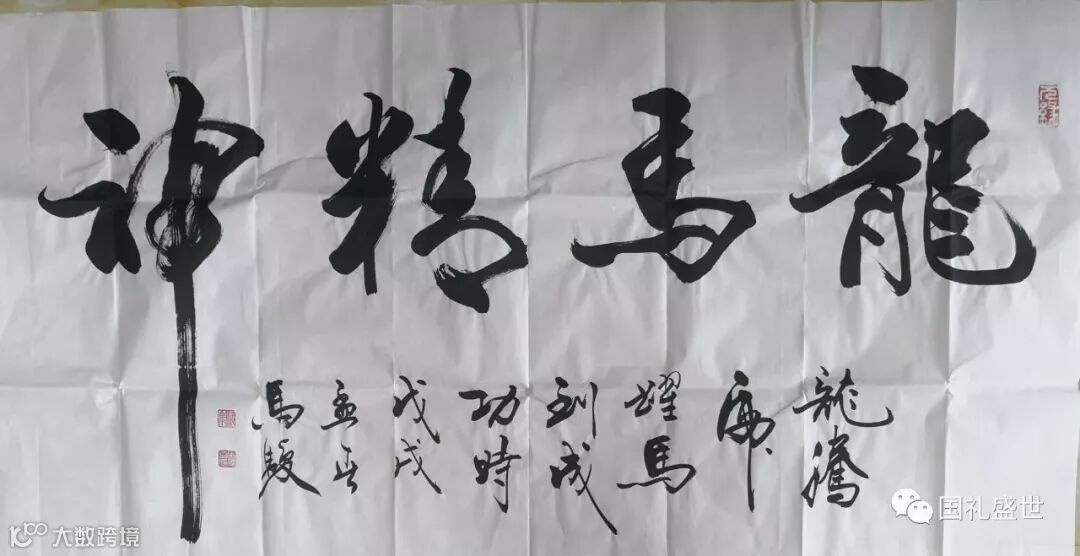 龍馬精神
龍騰
虎
躍馬
到成
功時
戊戌
孟春
馬駿
国礼盛世
大数跨境